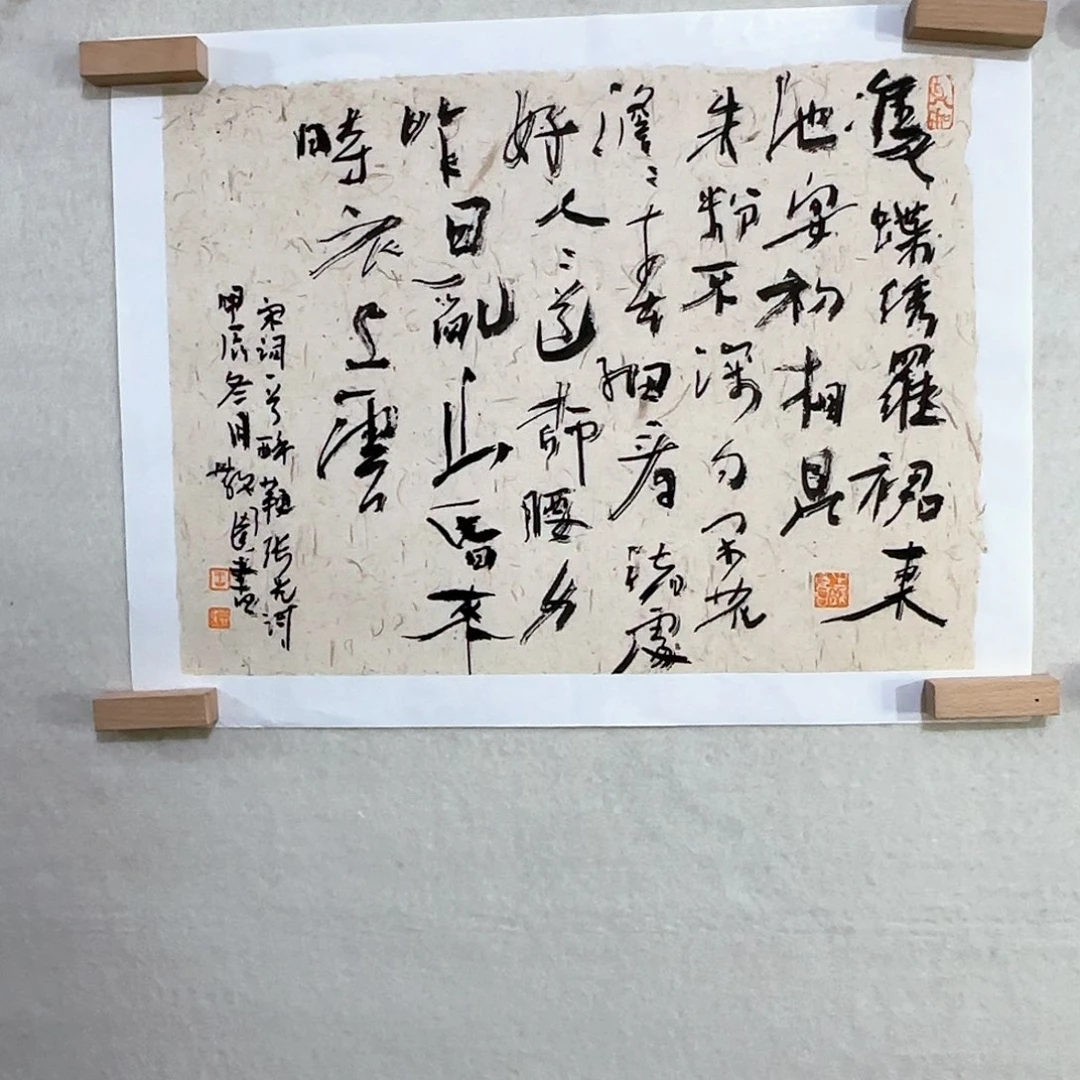 雙蝶绣羅裙東
池宴初相見
朱粉不深匀閒花
澹〻春細看諸處
好人〻道柳腰身
昨日亂山昏來
時衣上雲
宋詞一首醉垂鞭張先詞
甲辰冬月敬園書